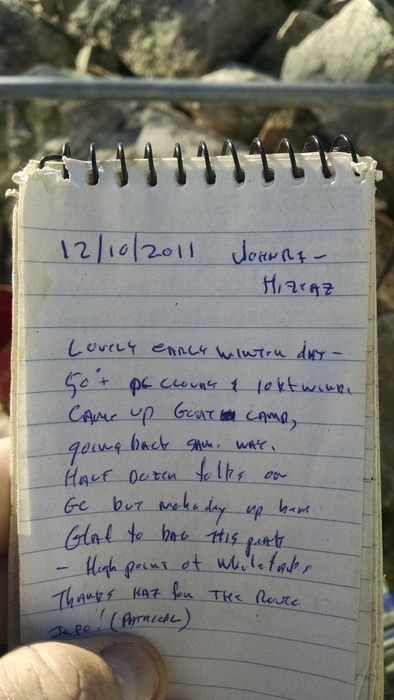 12/10/2011 JOHNR1-
HIZCAZ
LOVELY EARLY WINTER DAY-
50°+ PC CLOUDY & 10KT WINDS.
CAME UP GOAT CAMP,
going back SAME WAY.
HALF DOZEN folks on
GC but nobody up here
Glad to BAG THIS peak
- High point of White Tanks
THANKS HAZ for THE ROUTE
INFO! (